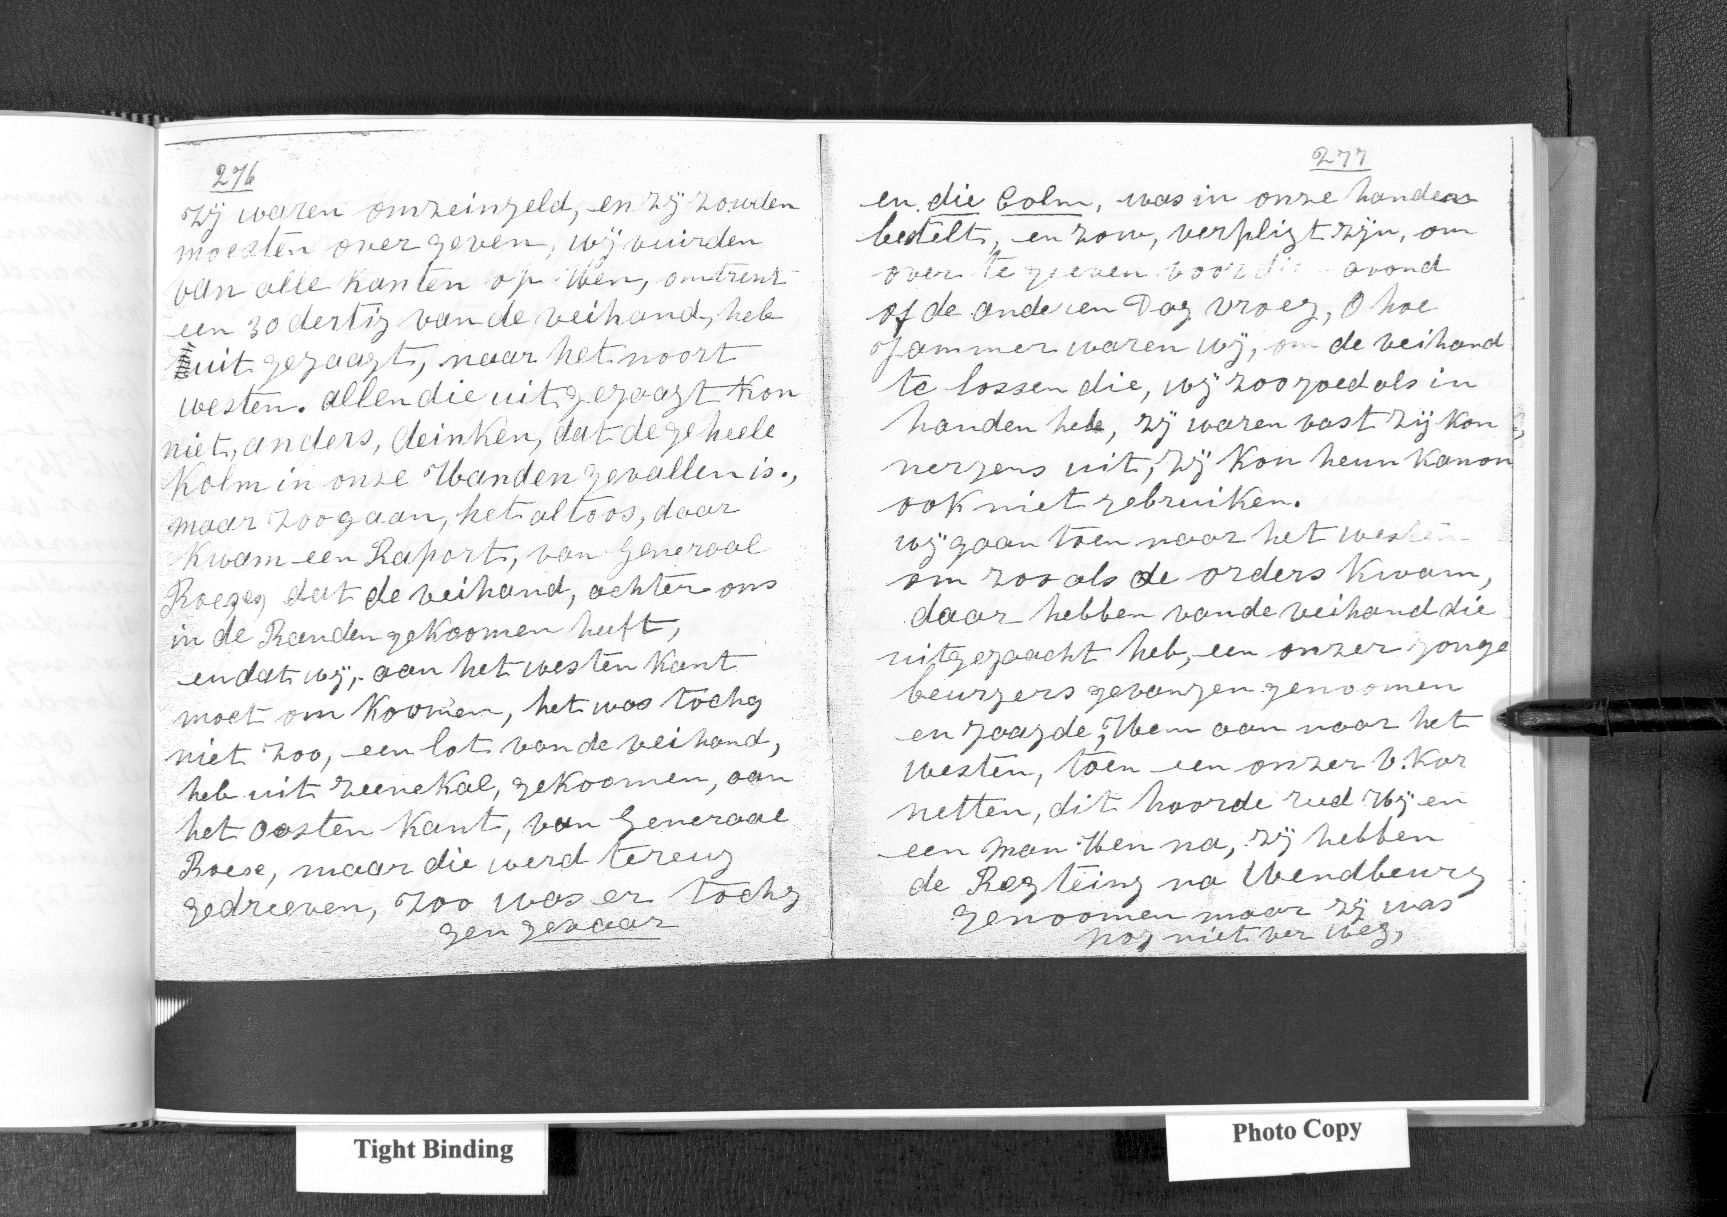 276
zij waren omzeingeld, en zij zouden
moesten over geven, wij vuirden
van alle kanten op Hen, omtrent
een 30 dertig van de veihand, heb
uit gejaagt, naar het noort
westen. allen die uit gejaagt kon
niet, anders, deinken, dat de geheele
Kolm in onze Handen gevallen is.,
maar zoo gaan, het altoos, daar
kwam een Raport, van Generaal
dat de veihand, achter ons
in de Randen gekoomen heeft,
en dat wij, aan het westen kant
moet om koomen, het was tochg
niet zoo, een lot van de veihand,
heb uit zeenekal, gekoomen, aan
het Oosten kant, van Generaal
Roese, maar die werd tereug
gedreeven, zoo was er tochg
gen gevaar
277
en die Colm, was in onze handen
bestelt, en zouw, verpligt zijn, om
over te geeven voor avond
of de anderen Dag vroeg, O hoe
jammer waren wij, om de veihand
te lossen die, wij zoo goed als in
handen heb, zij waren vast zij kon
nergens uit, zij kon heun kanon
ook niet gebruiken.
wij gaan toen naar het westen
om zoo als de orders kwam,
daar hebben van de veihand die
uitgejaacht heb, een onzer jonge
beurgers gevangen genoomen
en jaagde, Hem aan naar het
westen, toen een onzer V. Kor
netten, dit hoorde reed Hij en
een man Hen na, zij hebben
de Regteing na Wendbeurg
genoomen maar zij was
nog niet ver weg,
Tight Binding
Photo Copy